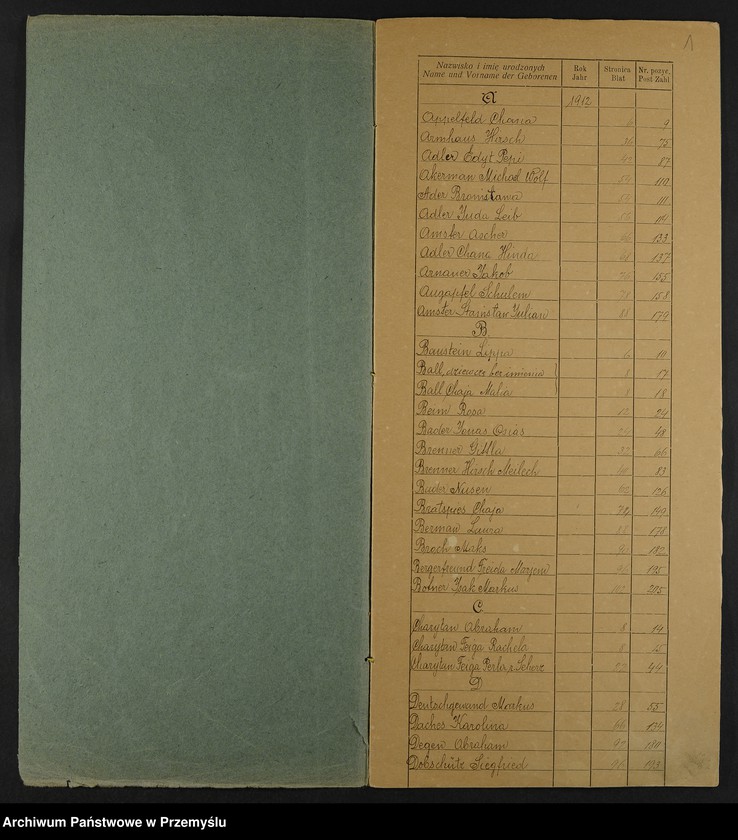 1
Nazwisko i imię urodzonych Rok Stronica Nr. pozyc.
Name und Vorname der Geborenen Jahr Blat Post Zahl
A 1912
Appelfeld Chana 9
Armhaus Hersch 75
Adler Edyt Pepi 87
Akerman Michael Wolf 110
Ader Bronisława 111
Adler Juda Leib 114
Amster Ascher 133
Adler Chana Hinda 137
Arnauer Jakob 155
Augapfel Schulem 158
Amster Stanisław Julian 179
B.
Baustein Lippa 6 10
Ball, dziewczę bez imienia 8 17
Ball Chaja Malia 8 18
Beim Rosa 12 24
Bader Jonas Osias 48
Brenner Gittla 66
Brenner Hersch Meilech 83
Bader Nusen 126
Bratspies Chaja 74 149
Berman Laura 88 178
Broch Marks 182
Bergerfreund Freida Marjem 195
Botner Isak Markus 205
C
Charytan Abraham 8 14
Charytan Feiga Rachela 8 15
Charytan Feiga Perla, z Scherz 22 44
D
Deutschgewand Markus 28 55
Daches Karolina 66 134
Degen Abraham
Dobschütz Siegfried 193
Archiwum Państwowe w Przemyślu